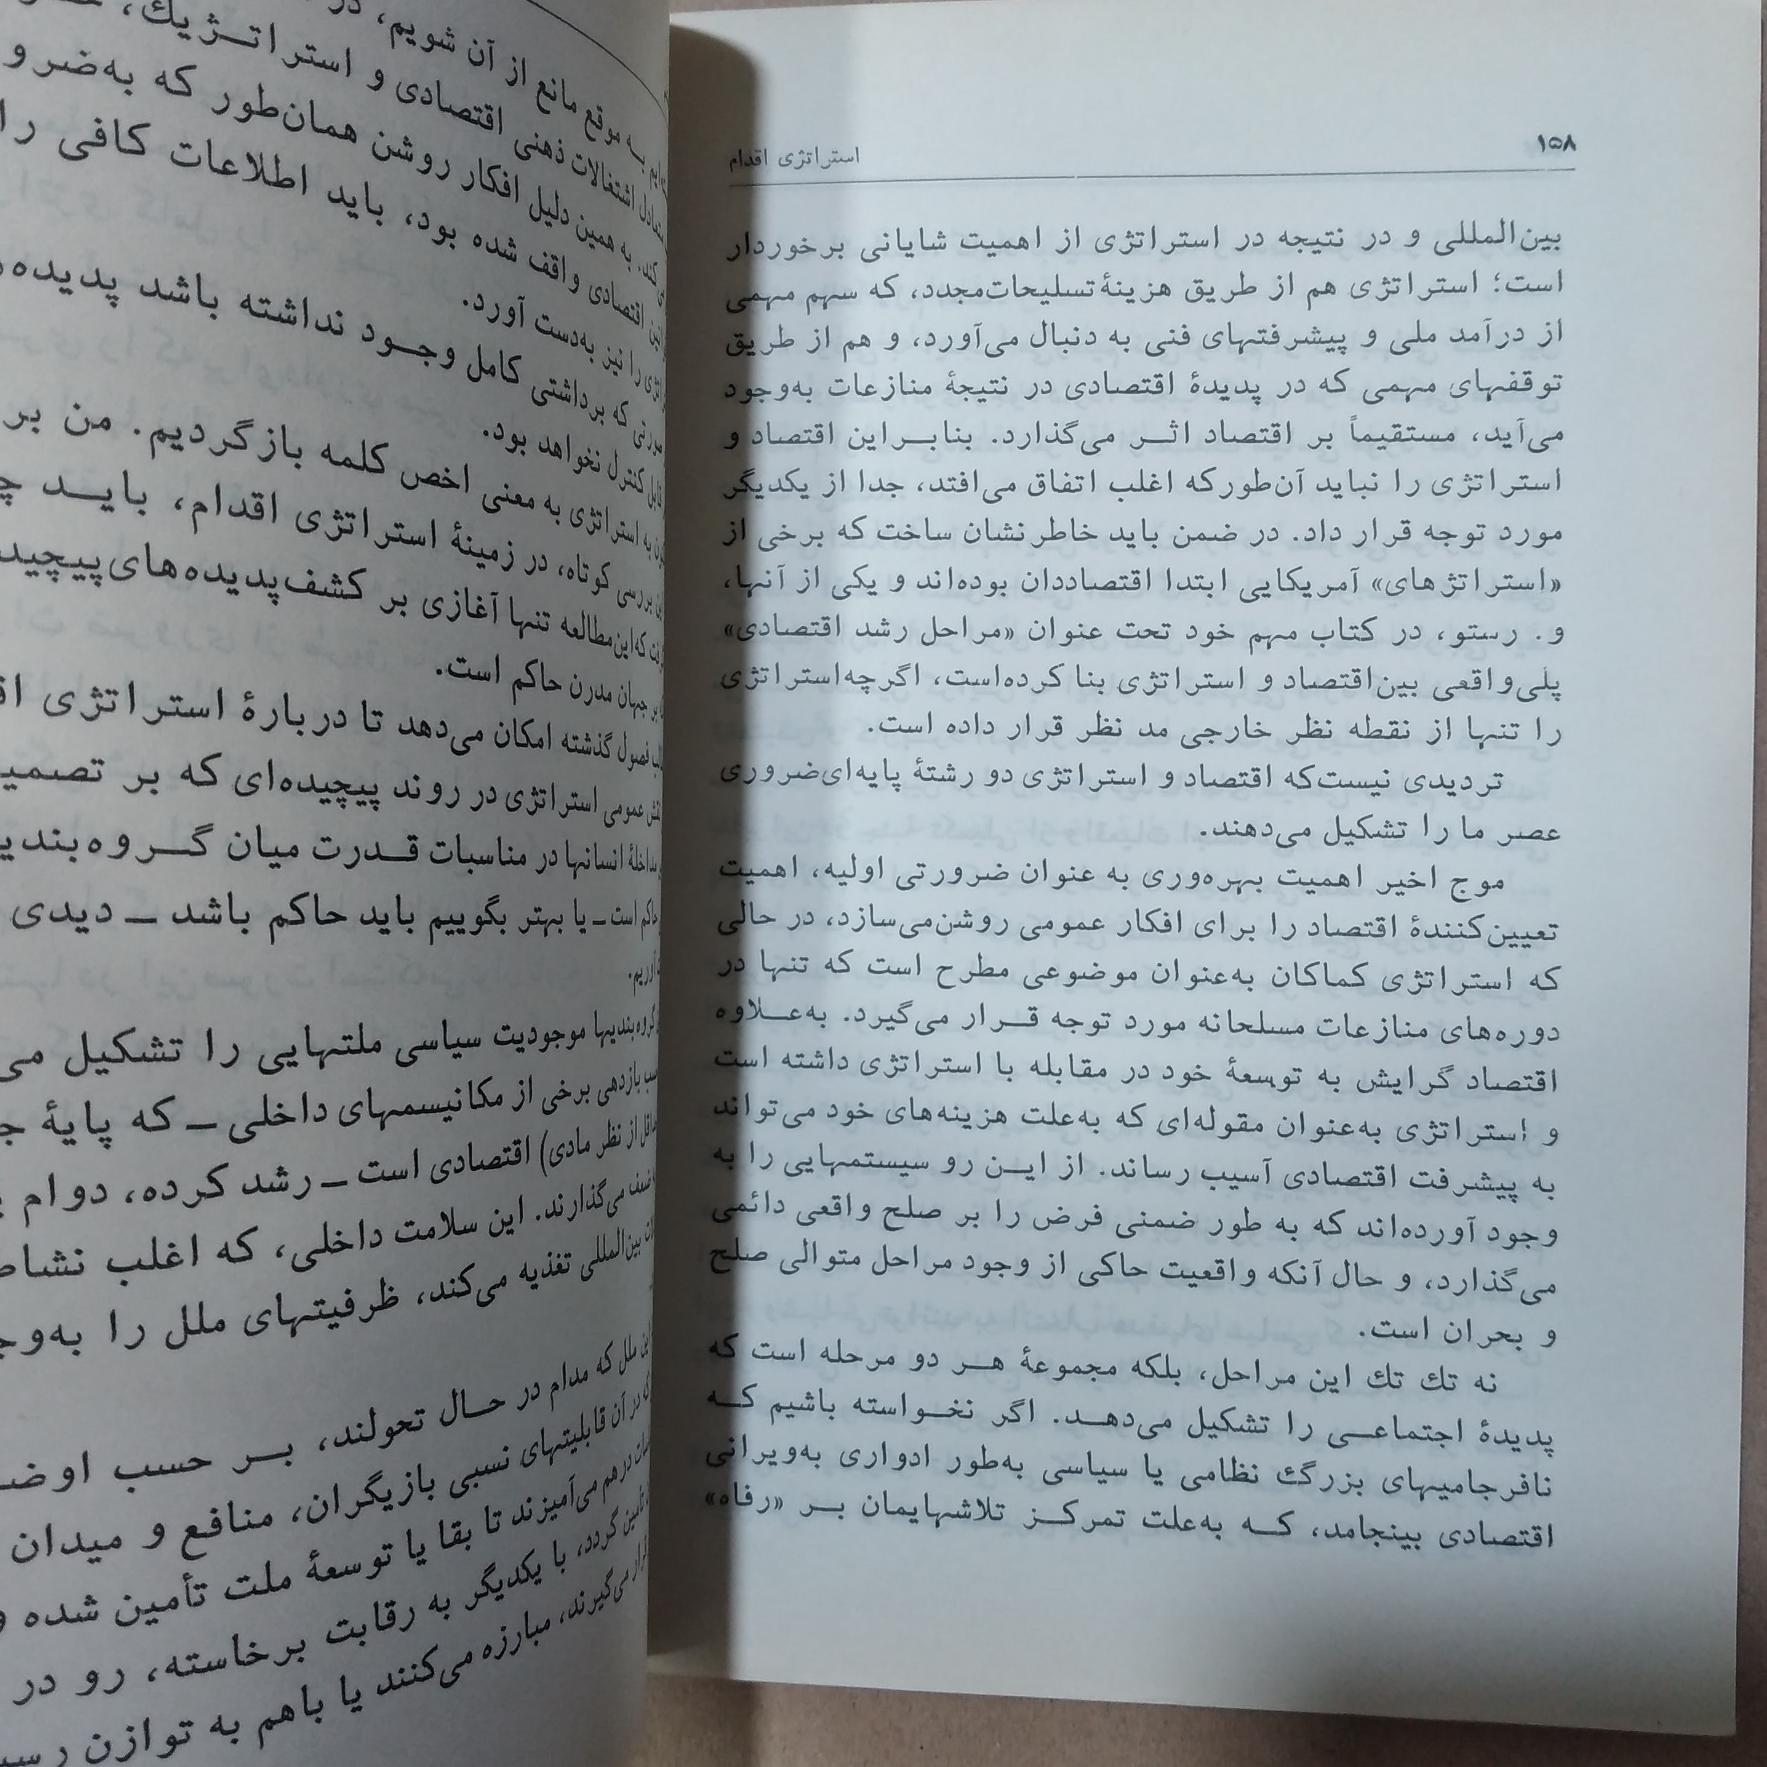 ۱۵۸
استراتژی اقدام
بین‌المللی و در نتیجه در استراتژی از اهمیت شایانی برخوردار
است؛ استراتژی هم از طریق هزینهٔ تسلیحات مجدد، که سهم مهمی
از درآمد ملی و پیشرفتهای فنی به دنبال می‌آورد، و هم از طریق
توقفهای مهمی که در پدیدهٔ اقتصادی در نتیجهٔ منازعات به‌وجود
می‌آید، مستقیماً بر اقتصاد اثر می‌گذارد. بنابراین اقتصاد و
استراتژی را نباید آن‌طورکه اغلب اتفاق می‌افتد، جدا از یکدیگر
مورد توجه قرار داد. در ضمن باید خاطرنشان ساخت که برخی از
«استراتژهای» آمریکایی ابتدا اقتصاددان بوده‌اند و یکی از آنها،
و. رستو، در کتاب مهم خود تحت عنوان «مراحل رشد اقتصادی»
پلی‌واقعی بین‌اقتصاد و استراتژی بنا کرده‌است، اگرچه‌استراتژی
را تنها از نقطه نظر خارجی مد نظر قرار داده است.
تردیدی نیست‌که اقتصاد و استراتژی دو رشتهٔ پایه‌ای‌ضروری
عصر ما را تشکیل می‌دهند.
موج اخیر اهمیت بهره‌وری به عنوان ضرورتی اولیه، اهمیت
تعیین‌کنندهٔ اقتصاد را برای افکار عمومی روشن‌می‌سازد، در حالی
که استراتژی کماکان به‌عنوان موضوعی مطرح است که تنها در
دوره‌های منازعات مسلحانه مورد توجه قرار می‌گیرد. به‌علاوه
اقتصاد گرایش به توسعهٔ خود در مقابله با استراتژی داشته است
و استراتژی به‌عنوان مقوله‌ای که به‌علت هزینه‌های خود می‌تواند
به پیشرفت اقتصادی آسیب رساند. از این رو سیستمهایی را به
وجود آورده‌اند که به طور ضمنی فرض را بر صلح واقعی دائمی
می‌گذارد، و حال آنکه واقعیت حاکی از وجود مراحل متوالی صلح
و بحران است.
نه تك تك این مراحل، بلکه مجموعهٔ هر دو مرحله است که
پدیدهٔ اجتماعی را تشکیل می‌دهد. اگر نخواسته باشیم که
نافرجامیهای بزرگ نظامی یا سیاسی به‌طور ادواری به‌ویرانی
اقتصادی بینجامد، که به‌علت تمرکز تلاشهایمان بر «رفاه»
به موقع مانع از آن شویم، در
اشتغالات ذهنی اقتصادی و استراتژیك،
کند. به همین دلیل افکار روشن همان‌طور که به‌ضرو
اقتصادی واقف شده بود، باید اطلاعات کافی را
را نیز به‌دست آورد.
که برداشتی کامل وجود نداشته باشد پدیده
کنترل نخواهد بود.
به استراتژی به معنی اخص کلمه بازگردیم. من بر
بررسی کوتاه، در زمینهٔ استراتژی اقدام، باید
که‌این‌مطالعه تنها آغازی بر کشف‌پدیده‌های‌پیچید
بر جهان مدرن حاکم است.
فصول گذشته امکان می‌دهد تا دربارهٔ استراتژی
عمومی استراتژی در روند پیچیده‌ای که بر تصمی
انسانها در مناسبات قدرت میان گروه‌بندی
است ــ یا بهتر بگوییم باید حاکم باشد ــ دیدی
آوریم.
گروه‌بندیها موجودیت سیاسی ملتهایی را تشکیل می
بازدهی برخی از مکانیسمهای داخلی ــ که پایهٔ
از نظر مادی) اقتصادی است ــ رشد کرده، دوام
می‌گذارند. این سلامت داخلی، که اغلب نشا
بین‌المللی تغذیه می‌کند، ظرفیتهای ملل را به‌وج
این ملل که مدام در حال تحولند، بر حسب اوضـ
در آن قابلیتهای نسبی بازیگران، منافع و میدان
درهم می‌آمیزند تا بقا یا توسعهٔ ملت تأمین شده و
گردد، با یکدیگر به رقابت برخاسته، رو در
می‌گیرند، مبارزه می‌کنند یا باهم به توازن